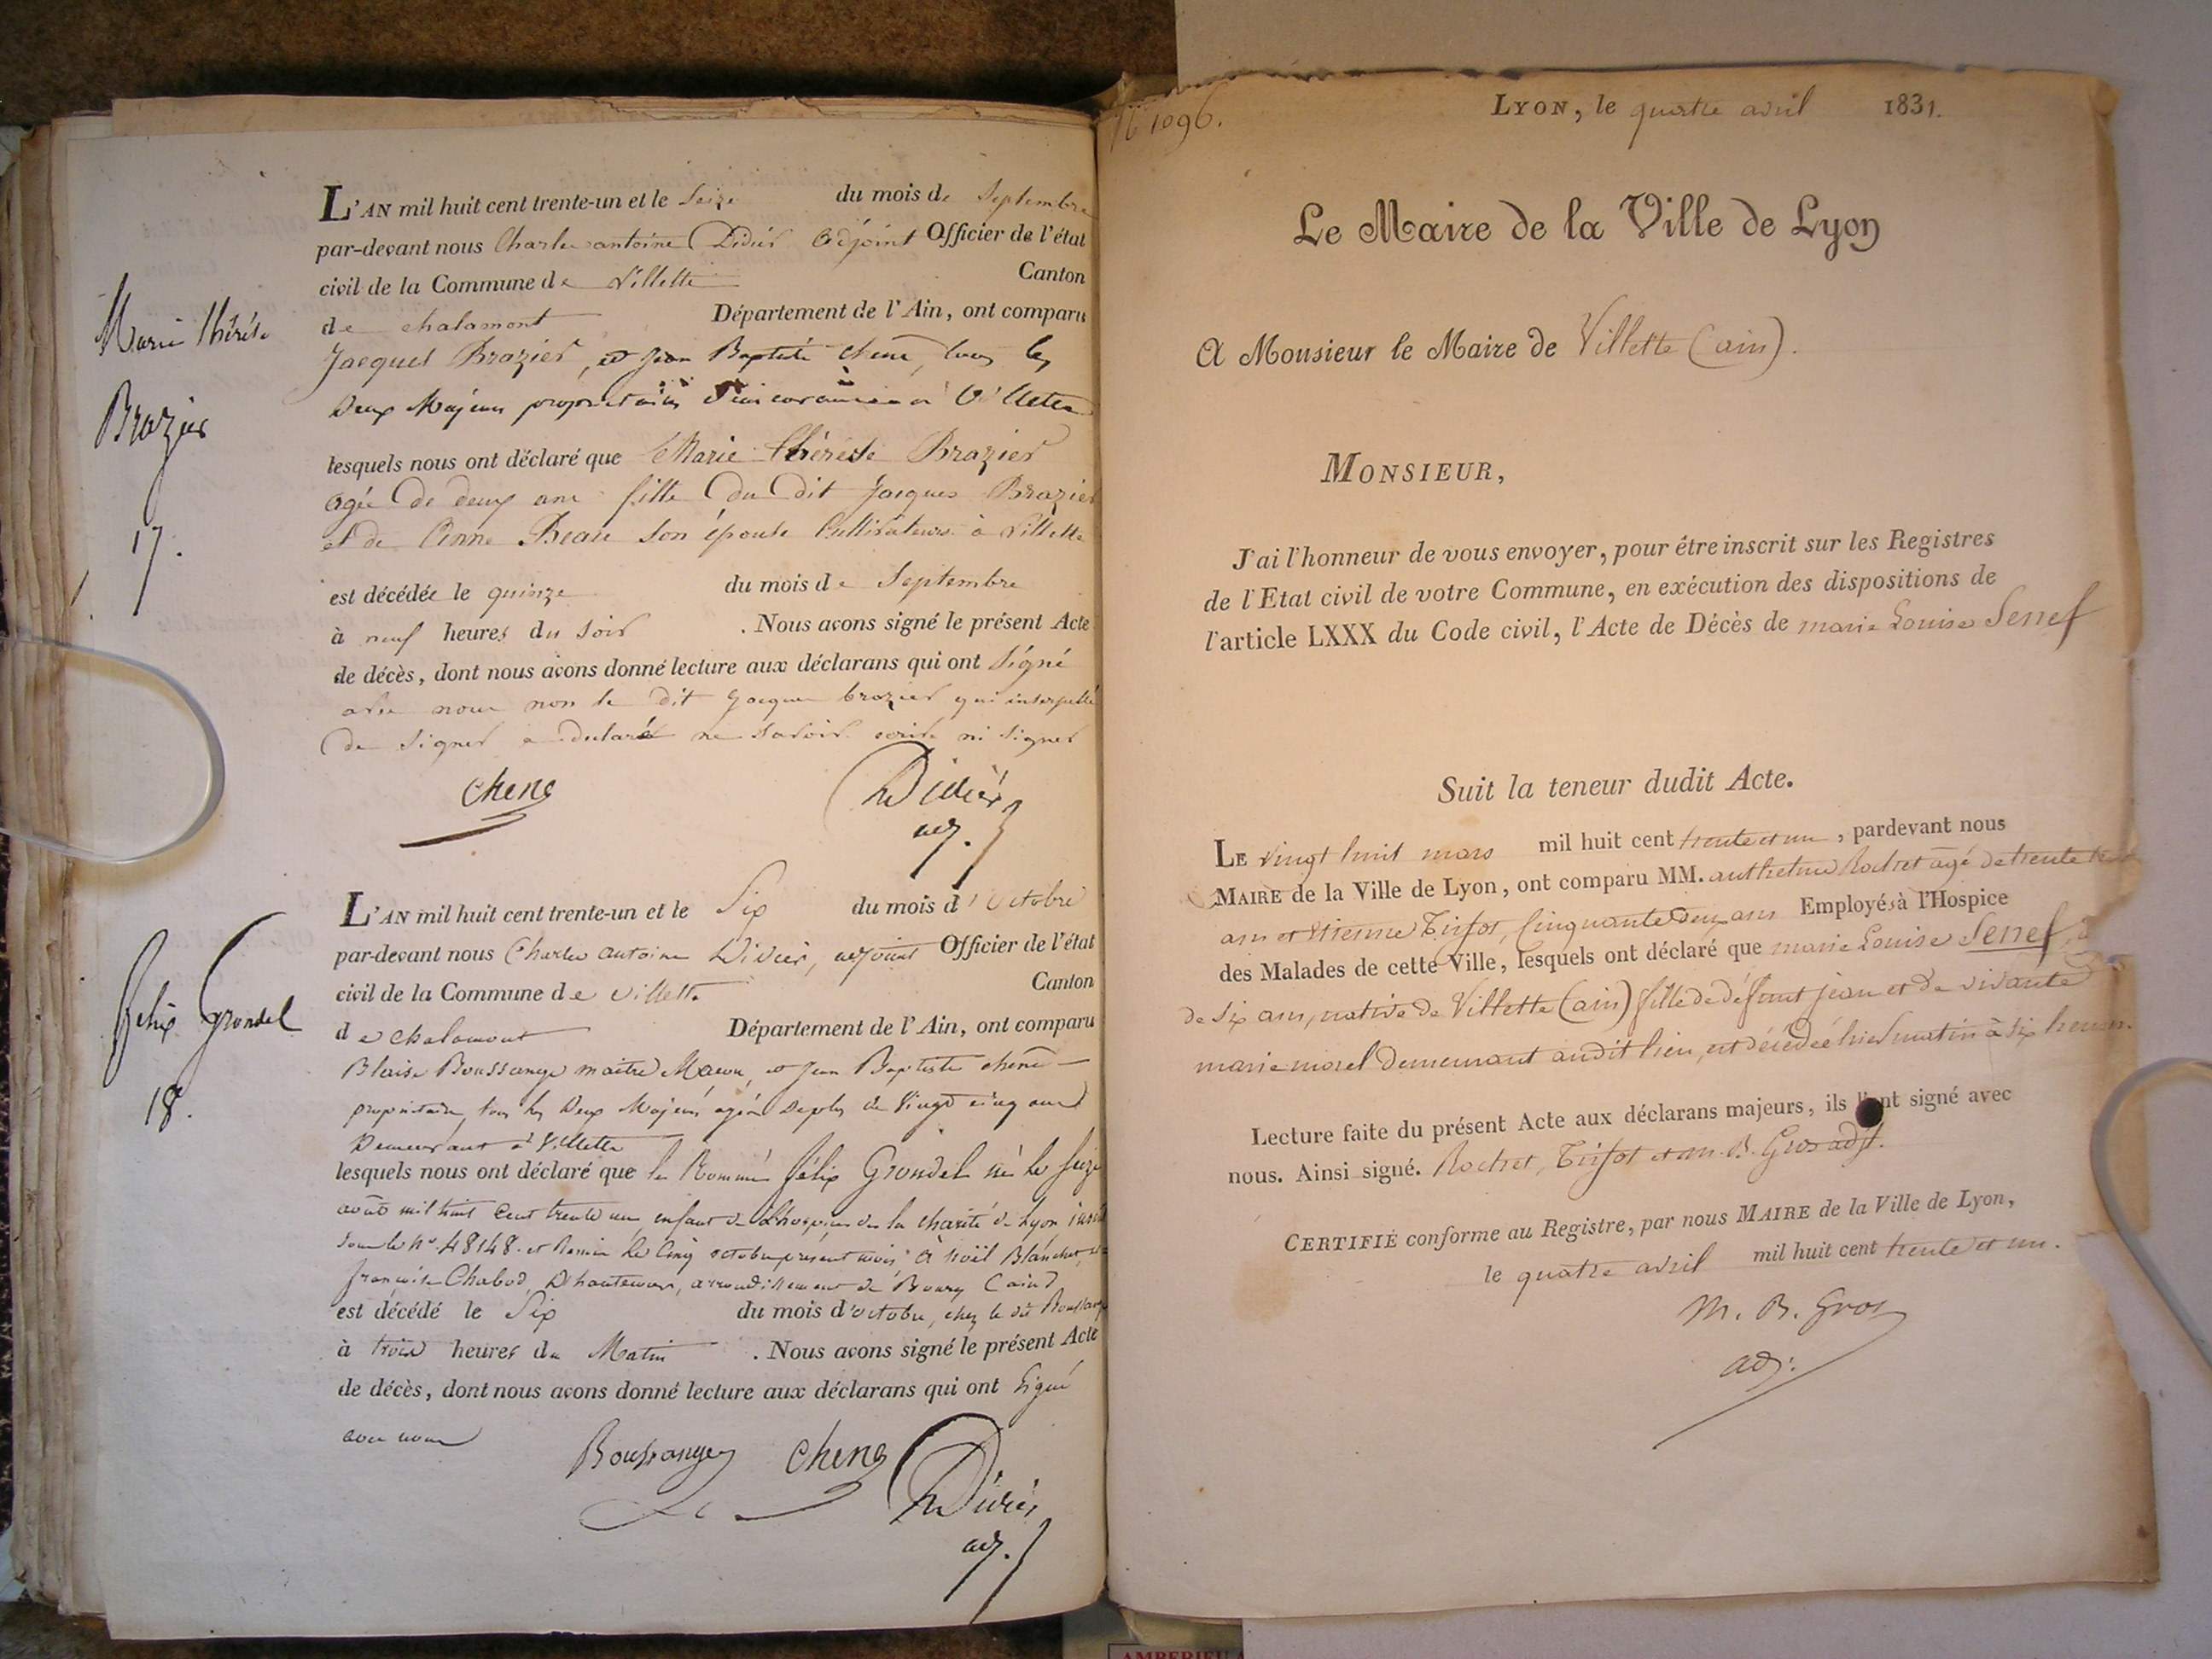 L'AN mil huit cent trente-un et le Seize du mois de Septembre
par-devant nous Charles antoine Didier Adjoint Officier de l'état
civil de la Commune de Villette Canton
de chalamont Département de l'Ain, ont comparu
Marie thérèse
Jacques Brazier, et jean Baptiste chene, tous les
deux Majeurs propriétaires à Villette
Brazier
lesquels nous ont déclaré que Marie thérèse Brazier
agée de deux ans fille du dit Jacques Brazier
17.
et de Anne Beau son épouse Cultivateurs à Villette
est décédée le quinze du mois de Septembre
à neuf heures du soir . Nous avons signé le présent Acte
de décès, dont nous avons donné lecture aux déclarans qui ont Signé
avec nous non le dit Jacques brazier qui interpellé
de signer a déclaré ne savoir écrire ni signer
chene Didier
adj.
L'AN mil huit cent trente-un et le Six du mois d'Octobre
par-devant nous Charles antoine Didier, adjoint Officier de l'état
civil de la Commune de Villette Canton
felix Grondel
de chalamont Département de l'Ain, ont comparu
Blaise Boussange maître Macon, et jean Baptiste chêne
18.
propriétaire, tous les deux Majeurs agés de plus de Vingt cinq ans
Demeurant à Villette
lesquels nous ont déclaré que le Nommé félix Grondel né le seize
août mil huit Cent trente un, enfant de L'hospice de la charité de Lyon inscrit
sous le n° 48148. et Remis le Cinq octobre présent mois, à Noël Blanchet, et
françoise Chabod, D'hauteville, arrondissement de Bourg (ain)
est décédé le Six du mois d'octobre, chez le dit Boussange
à trois heures du Matin . Nous avons signé le présent Acte
de décès, dont nous avons donné lecture aux déclarans qui ont Signé
avec nous
Boussange chene Didier
adj.
1096.
LYON, le quatre avril 1831.
Le Maire de la Ville de Lyon
A Monsieur le Maire de Villette (ain).
MONSIEUR,
J'ai l'honneur de vous envoyer, pour être inscrit sur les Registres
de l'Etat civil de votre Commune, en exécution des dispositions de
l'article LXXX du Code civil, l'Acte de Décès de marie Louise Senef
Suit la teneur dudit Acte.
LE vingt huit mars mil huit cent trente et un, pardevant nous
MAIRE de la Ville de Lyon, ont comparu MM. Rochet âgé de trente
ans et Etienne Tissot, Cinquante deux ans Employés à l'Hospice
des Malades de cette Ville, lesquels ont déclaré que marie Louise Senef,
de six ans, native de Villette (ain) fille de défunt jean et de vivante
marie morel demeurant audit lieu, est décédée hier matin à six heures.
Lecture faite du présent Acte aux déclarans majeurs, ils l'ont signé avec
nous. Ainsi signé. Rochet, Tissot et m. B. Gros adjt.
CERTIFIÉ conforme au Registre, par nous MAIRE de la Ville de Lyon,
le quatre avril mil huit cent trente et un.
M. B. Gros
adj.